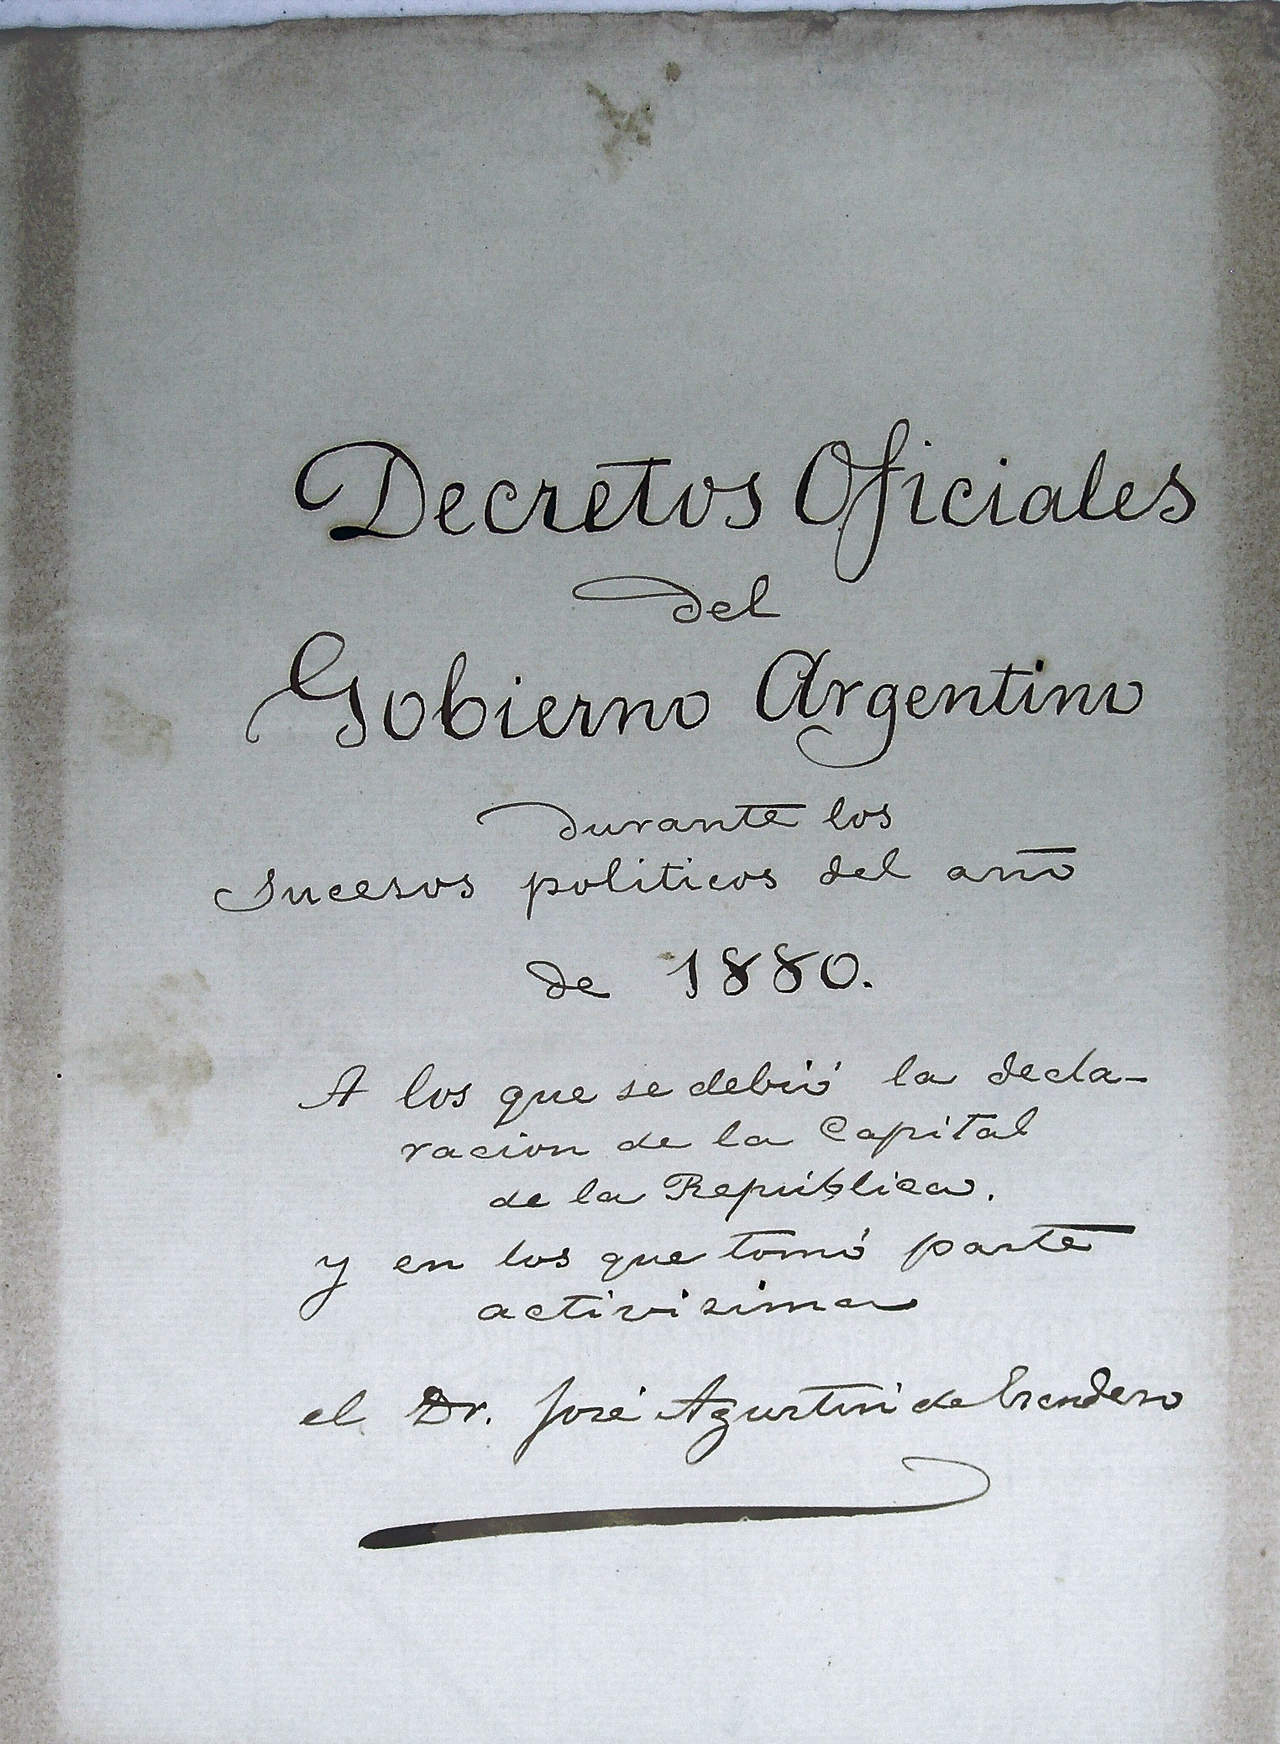 Decretos Oficiales
del
Gobierno Argentino
durante los
Sucesos politicos del año
de 1880.
A los que se debió la decla-
racion de la Capital
de la República.
y en los que tomó parte
activisima
el Dr. José Agustín de Escudero